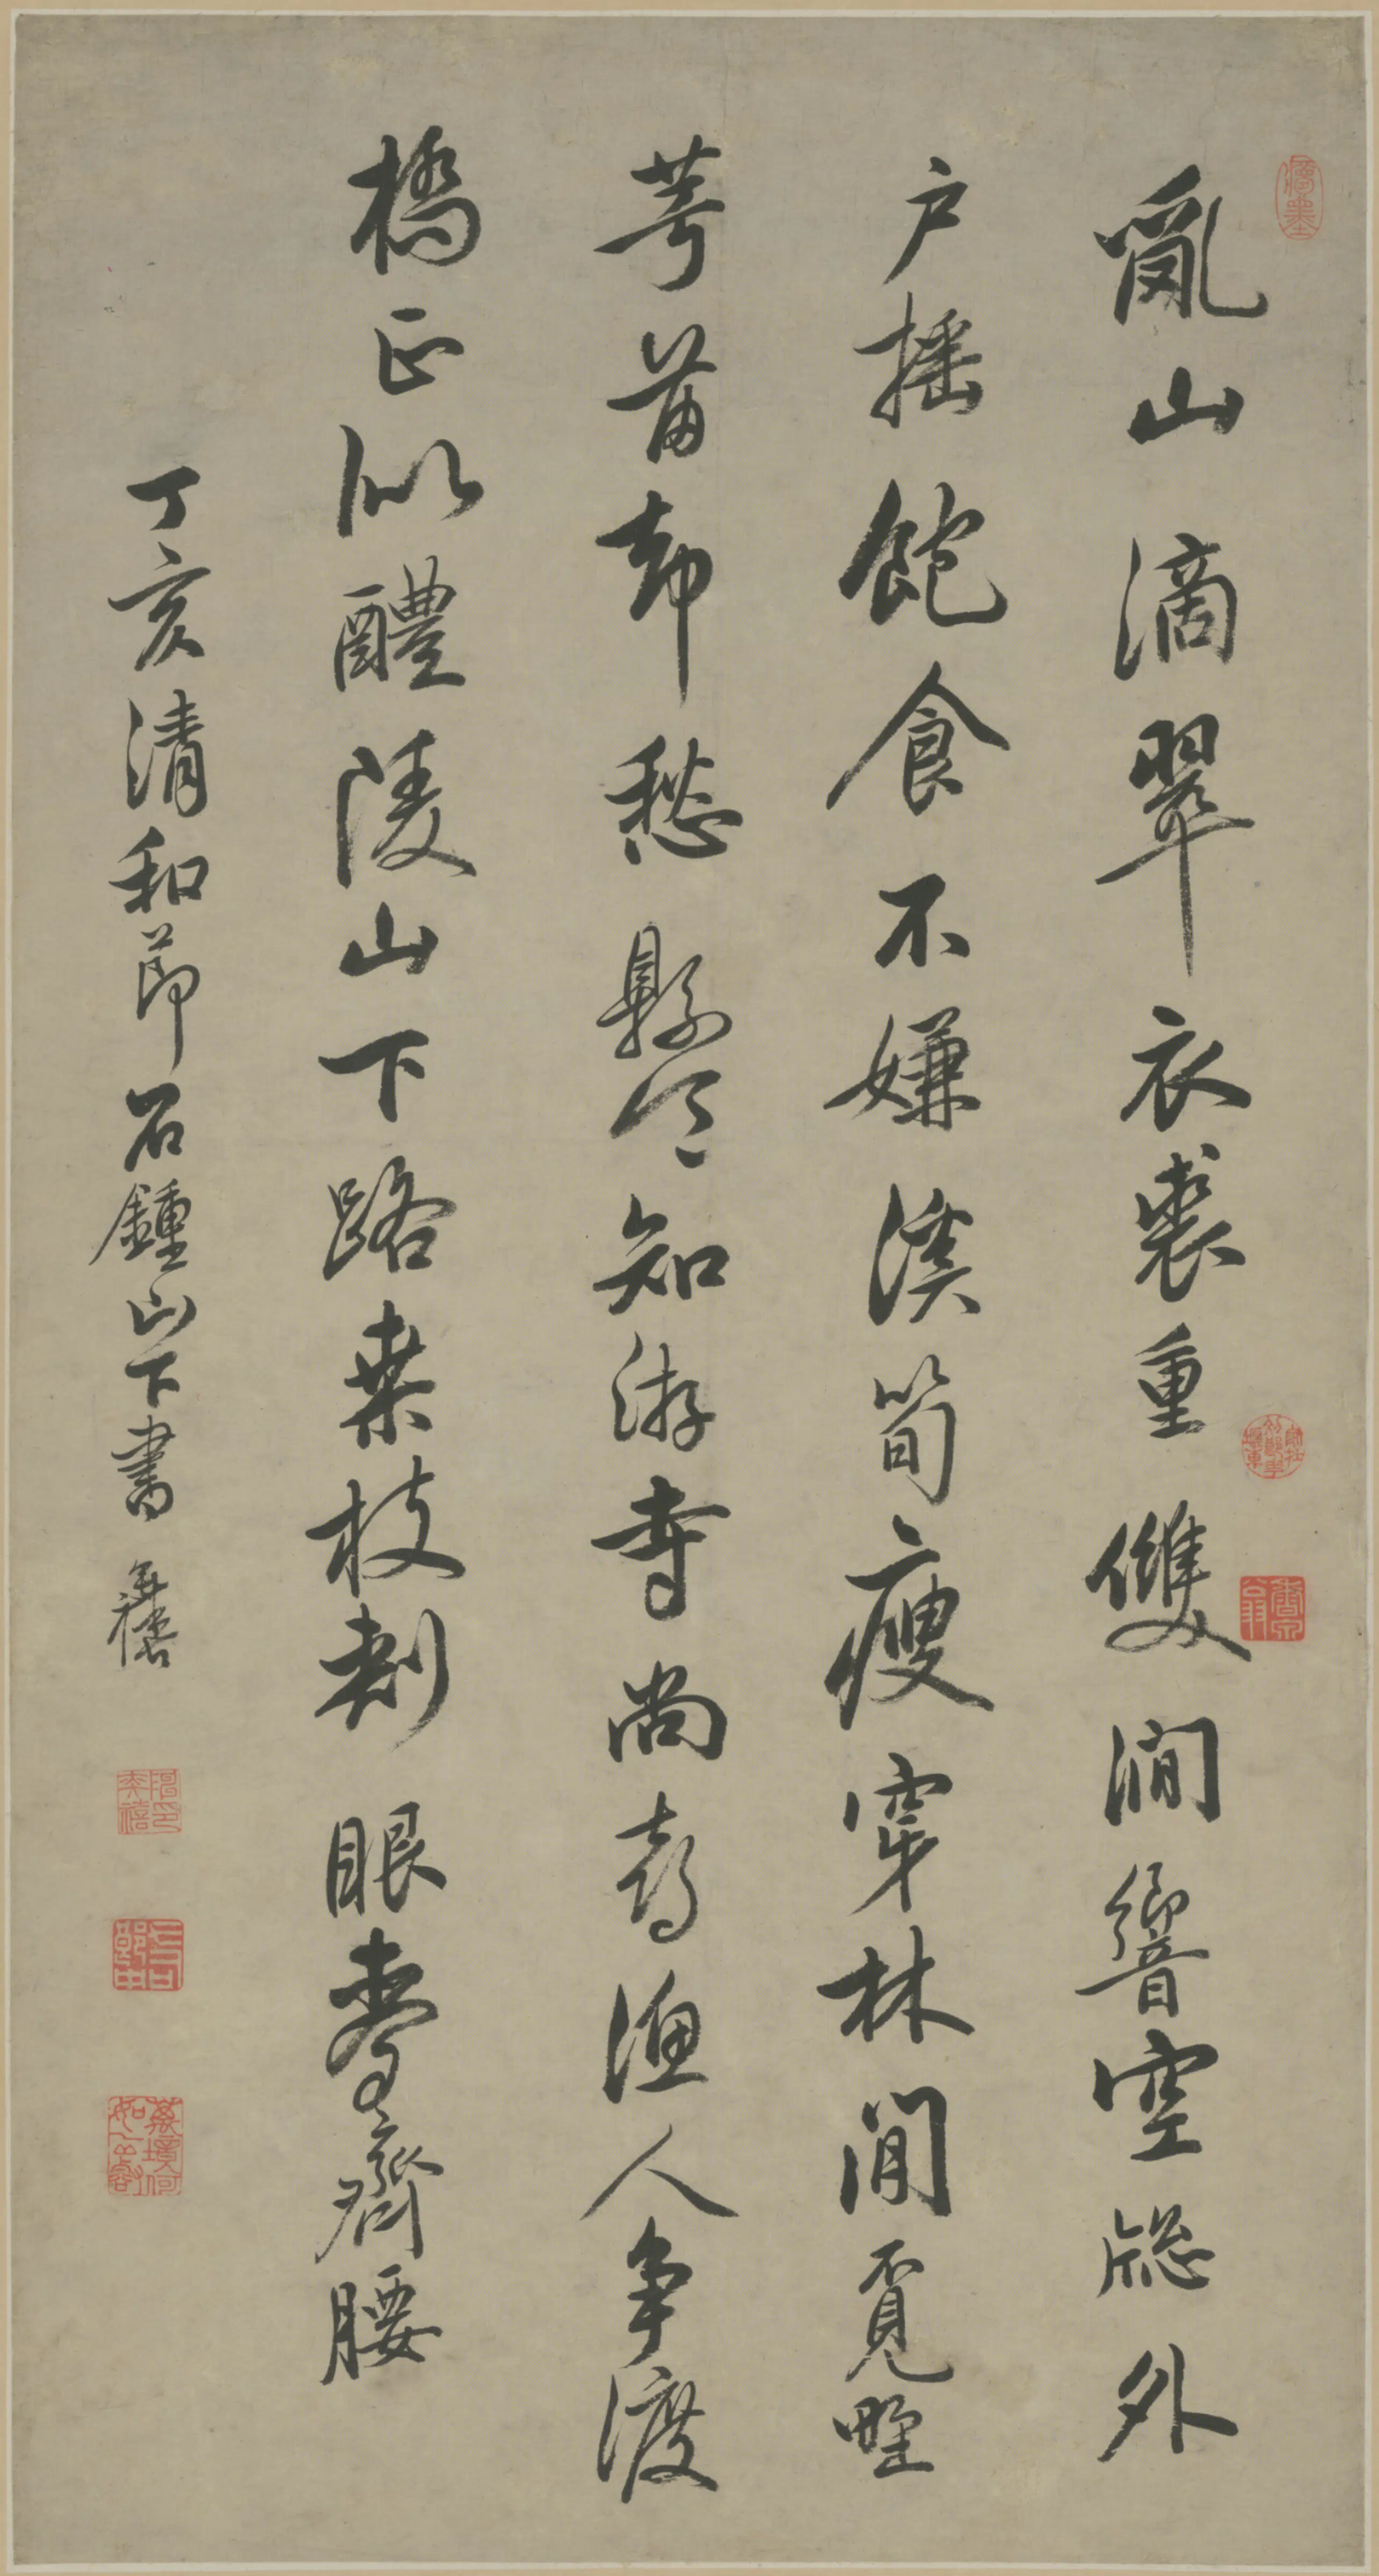 亂山滴翠衣裘重雙澗響空牕外
户摇飽食不嫌溪筍瘦穿林閒覓野
芎苗却愁縣令知游寺尚喜漁人争渡
橋正似醴陵山下路桒枝刺眼麥齊腰
丁亥清和節石鍾山下書 奕禧